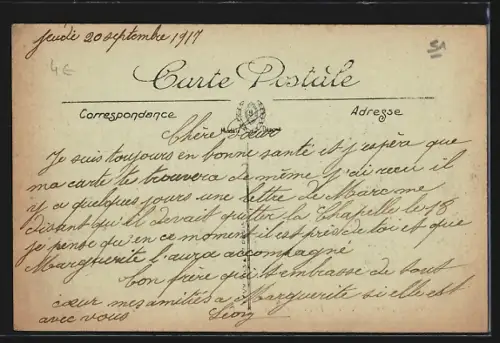 Jeudi 20 septembre 1917
4€
51
Carte Postale
Correspondance
Adresse
Chère Sœur
Je suis toujours en bonne santé et j'espère que
ma carte te trouvera de même j'ai recu il
y a quelques jours une lettre de Marc me
disant qu'il devait quitter la Chapelle le 18
je pense qu'en ce moment il est près de toi et que
Marguerite l'aura accompagné
bon frère qui t'embrasse de tout
cœur mes amitiés a Marguerite si elle est
avec vous Léon